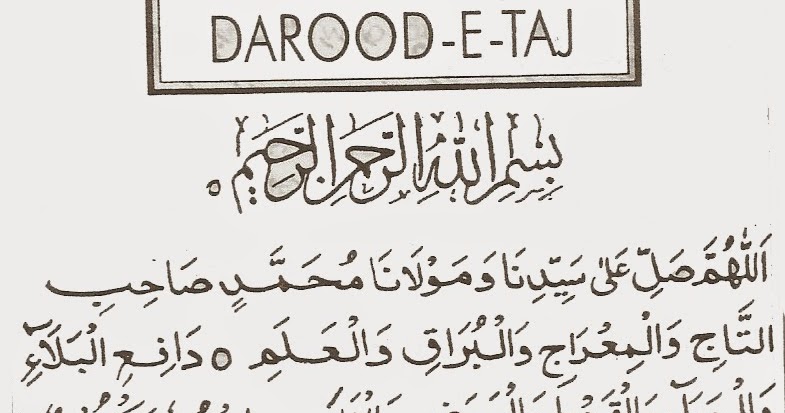 DAROOD-E-TAJ
بِسْمِ اللّٰهِ الرَّحْمٰنِ الرَّحِيْمِ ۝
اَللّٰهُمَّ صَلِّ عَلٰى سَيِّدِنَا وَمَوْلَانَا مُحَمَّدٍ صَاحِبِ
التَّاجِ وَالْمِعْرَاجِ وَالْبُرَاقِ وَالْعَلَمِ ۝ دَافِعِ الْبَلَآءِ